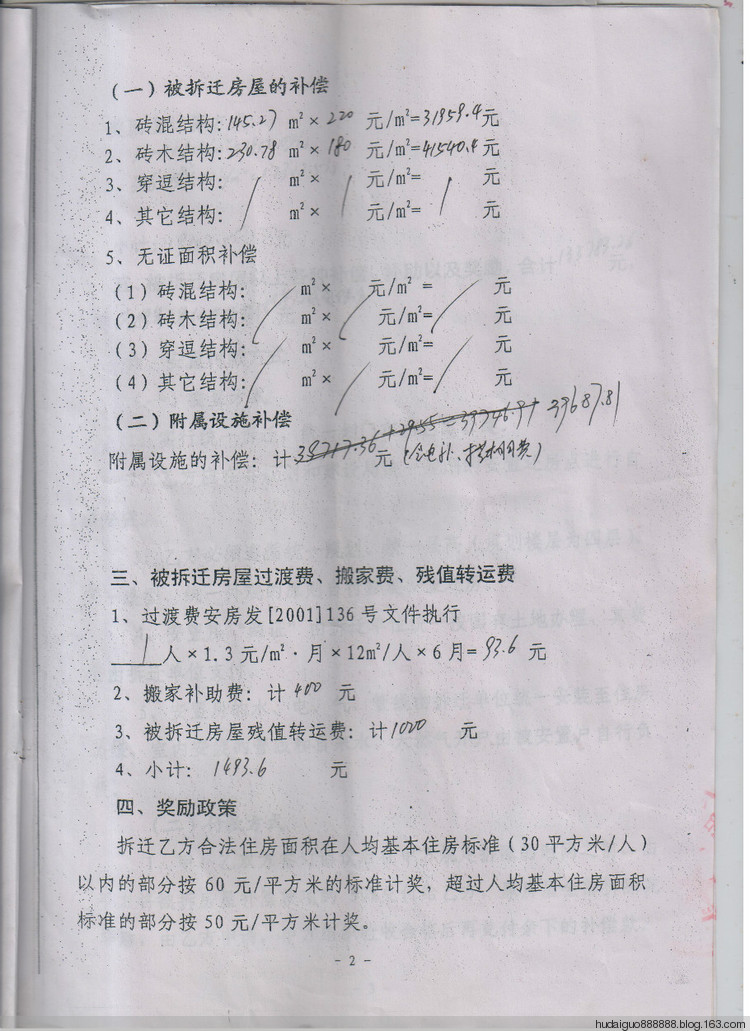 （一）被拆迁房屋的补偿
1、砖混结构：145.27 m²×220 元/m²=31959.4元
2、砖木结构：230.78 m²×180 元/m²=41540.4元
3、穿逗结构： / m²× / 元/m²= / 元
4、其它结构： / m²× / 元/m²= / 元
5、无证面积补偿
（1）砖混结构： / m²× / 元/m² = / 元
（2）砖木结构： m²× 元/m²= 元
（3）穿逗结构： / m²× / 元/m²= / 元
（4）其它结构： m²× 元/m²= 元
（二）附属设施补偿
39687.81
附属设施的补偿：计 元
三、被拆迁房屋过渡费、搬家费、残值转运费
1、过渡费安房发[2001]136号文件执行
1人×1.3元/m²·月×12m²/人×6月=93.6 元
2、搬家补助费：计400 元
3、被拆迁房屋残值转运费：计1000 元
4、小计：1493.6 元
四、奖励政策
拆迁乙方合法住房面积在人均基本住房标准（30平方米/人）
以内的部分按60元/平方米的标准计奖，超过人均基本住房面积
标准的部分按50元/平方米计奖。
- 2 -
hudaiguo888888.blog.163.com